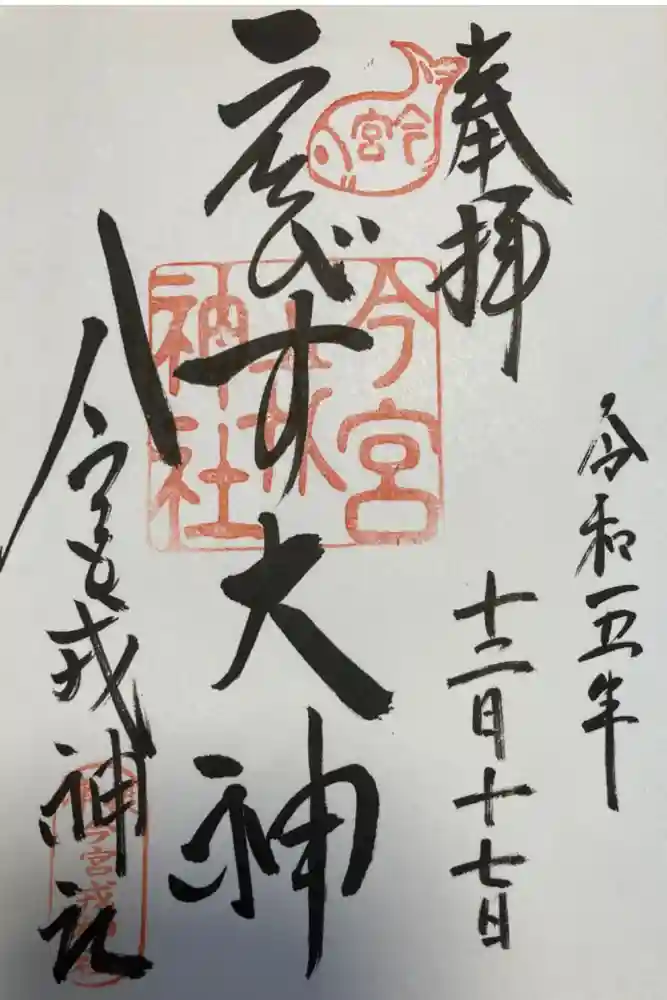 令和五年
十二月十七日
奉拝
今宮
ゑびす大神
今宮
神社
今宮戎神社